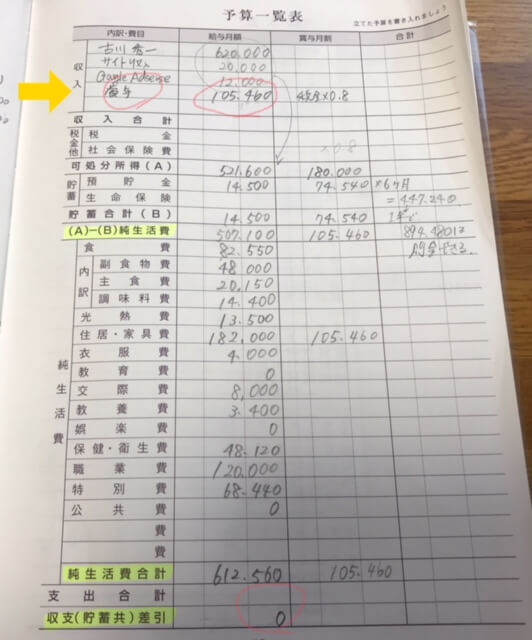 予算一覧表
立てた予算を書き入れましょう
内訳・費目 給与月額 賞与月割 合計
収入
古川秀一 620,000
サイト収入 20,000
Google Adsense 12,000
賞与 105.460 ×0.8
収入合計
税金他 税金
社会保険費 ×0.8
可処分所得(A) 521,600 180,000
貯蓄 預貯金 14,500 74,540 ×6ヶ月
生命保険 =447,240
貯蓄合計(B) 14,500 74,540
(A)−(B)純生活費 507,100 105,460 894,480は
貯金できる
純生活費
食費 82,550
内訳 副食物費 48,000
主食費 20,150
調味料費 14,400
光熱費 13,500
住居・家具費 182,000 105,460
衣服費 4,000
教育費 0
交際費 8,000
教養費 3,400
娯楽費 0
保健・衛生費 48,120
職業費 120,000
特別費 68,440
公共費 0
費
費
純生活費合計 612,560 105,460
支出合計
収支(貯蓄共)差引 0